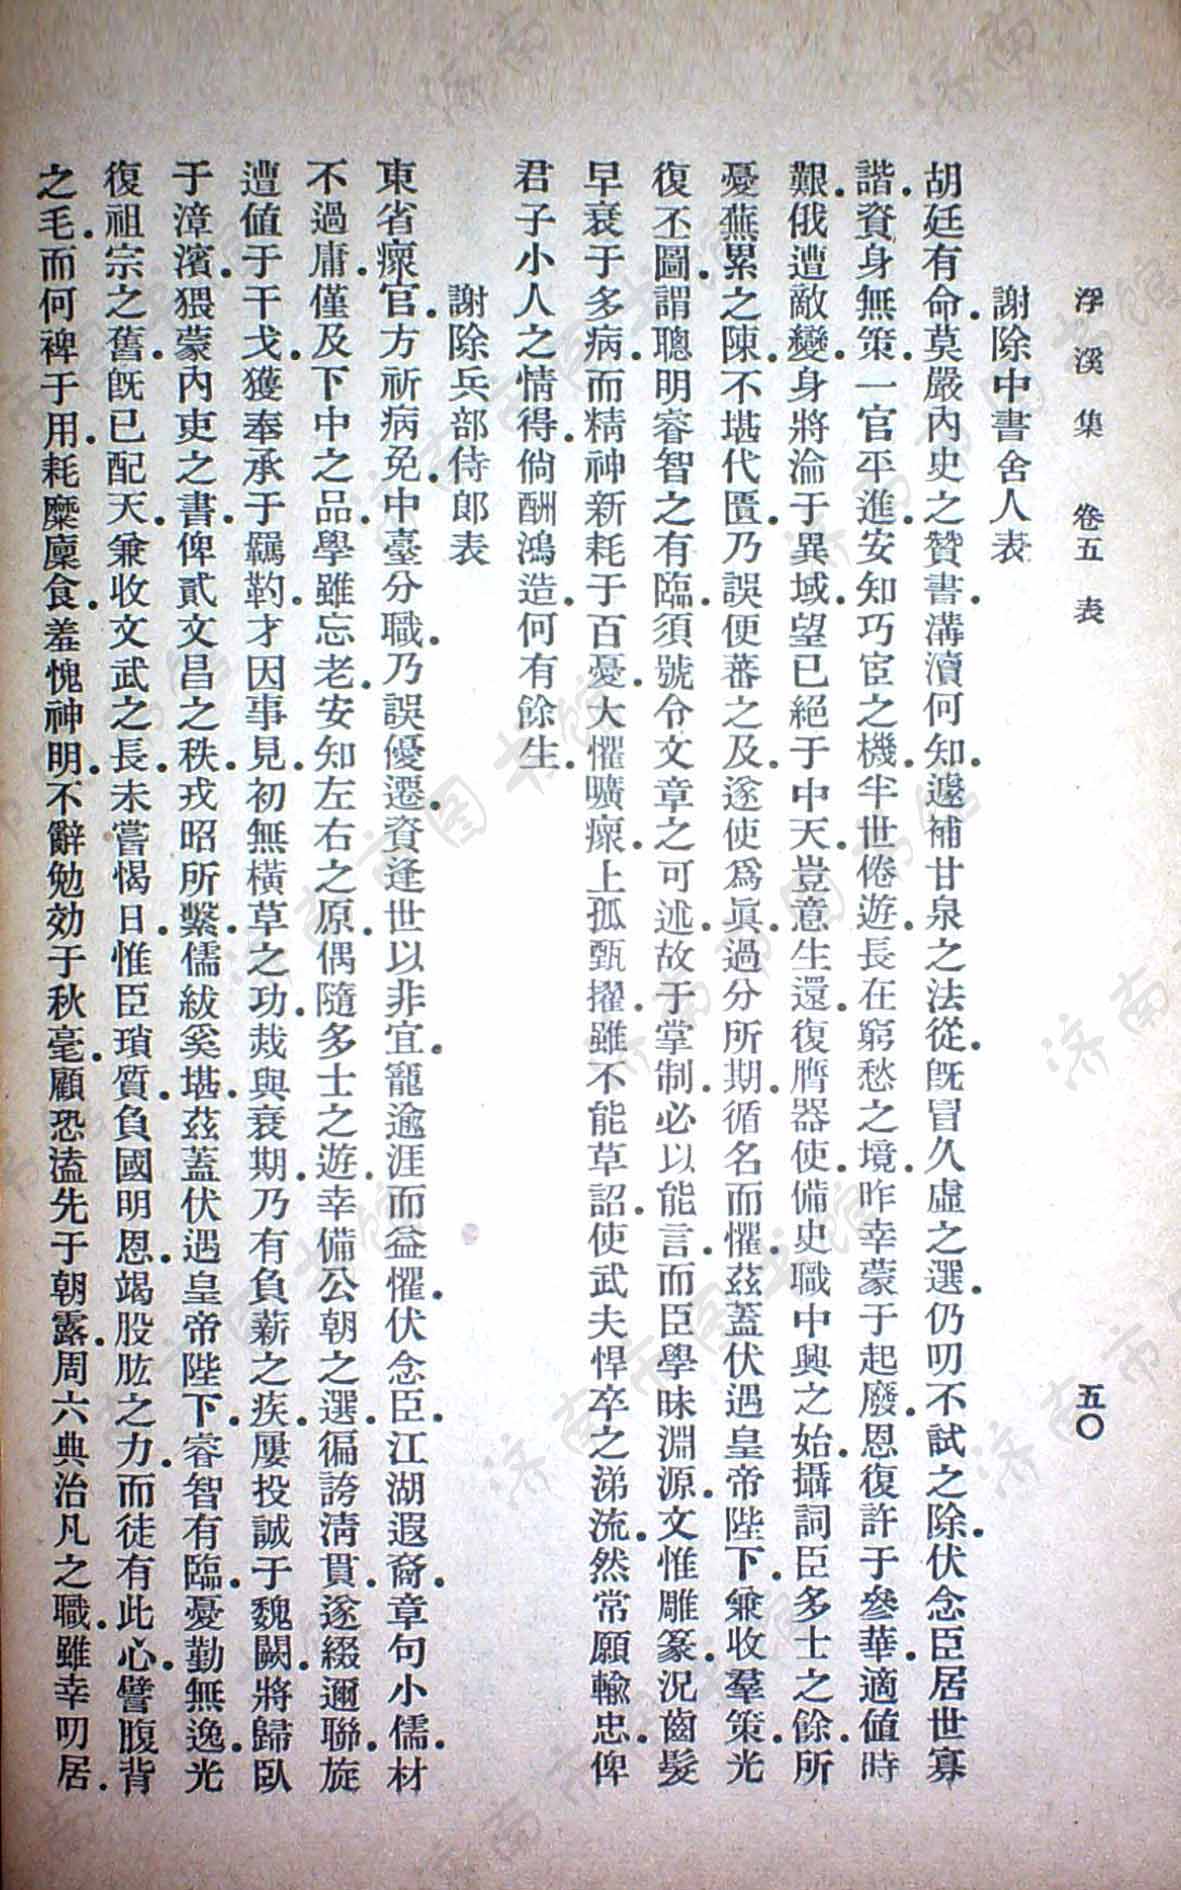 浮溪集　卷五　表　五〇
謝除中書舍人表
胡廷有命.莫嚴內史之贊書.溝瀆何知.遽補甘泉之法從.旣冒久虛之選.仍叨不試之除.伏念臣居世寡
諧.資身無策.一官平進.安知巧宦之機.半世倦遊.長在窮愁之境.昨幸蒙于起廢.恩復許于參華.適値時
艱.俄遭敵變.身將淪于異域.望已絕于中天.豈意生還.復膺器使.備史職中興之始.攝詞臣多士之餘.所
憂蕪累之陳.不堪代匱.乃誤便蕃之及.遂使爲眞.過分所期.循名而懼.茲蓋伏遇皇帝陛下.兼收羣策.光
復丕圖.謂聰明睿智之有臨.須號令文章之可述.故于掌制.必以能言.而臣學昧淵源.文惟雕篆.況齒髮
早衰于多病.而精神新耗于百憂.大懼曠瘝.上孤甄擢.雖不能草詔.使武夫悍卒之涕流.然常願輸忠.俾
君子小人之情得.倘酬鴻造.何有餘生.
謝除兵部侍郞表
東省瘝官.方祈病免.中臺分職.乃誤優遷.資逢世以非宜.寵逾涯而益懼.伏念臣.江湖遐裔.章句小儒.材
不過庸.僅及下中之品.學雖忘老.安知左右之原.偶隨多士之遊.幸備公朝之選.徧誇淸貫.遂綴邇聯.旋
遭値于干戈.獲奉承于羈靮.才因事見.初無橫草之功.烖與衰期.乃有負薪之疾.屢投誠于魏闕.將歸臥
于漳濱.猥蒙內吏之書.俾貳文昌之秩.戎昭所繫.儒紱奚堪.茲蓋伏遇皇帝陛下.睿智有臨.憂勤無逸.光
復祖宗之舊.旣已配天.兼收文武之長.未嘗愒日.惟臣瑣質.負國明恩.竭股肱之力.而徒有此心.譬腹背
之毛.而何裨于用.耗糜廩食.羞愧神明.不辭勉効于秋毫.顧恐溘先于朝露.周六典治凡之職.雖幸叨居.